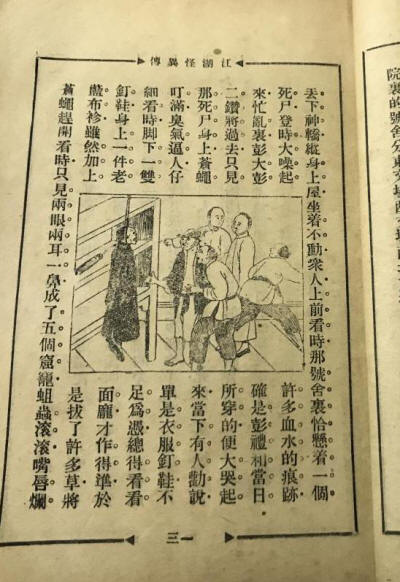 江湖怪異傳
丟下神轎縱身上屋坐着不動衆人上前看時那號舍裏恰懸着一個
死尸登時大噪起
來忙亂裏彭大彭
二鑽將過去只見
那死尸身上蒼蠅
叮滿臭氣逼人仔
細看時脚下一雙
釘鞋身上一件老
藍布袗雖然加上
許多血水的痕跡
確是彭禮和當日
所穿的便大哭起
來當下有人勸說
單是衣服釘鞋不
足爲憑總得看看
面龐才作得準於
是拔了許多草將
蒼蠅趕開看時只見兩眼兩耳一鼻成了五個窟窿蛆蟲滾滾嘴唇爛
一三
院裏的號舍分東文場西文